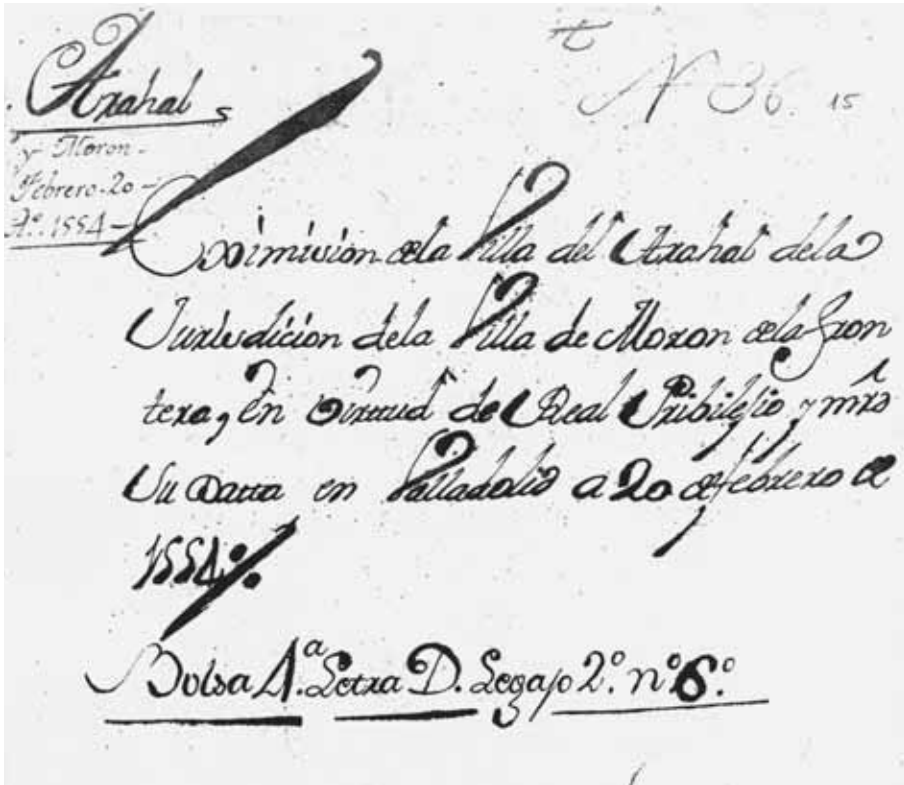 Arahal
y Moron
Febrero-20-
Aº. 1554-
Nº 36. 15
Eximision de la Villa del Arahal dela
Jurisdicion dela Villa de Moron dela Fron
tera, en virtud de Real Pribilejio y mrd
Su Datta en Valladolid a 20 de febrero de
1554.
Bolsa 4.ª Letra D. Legajo 2.º nº 6.º